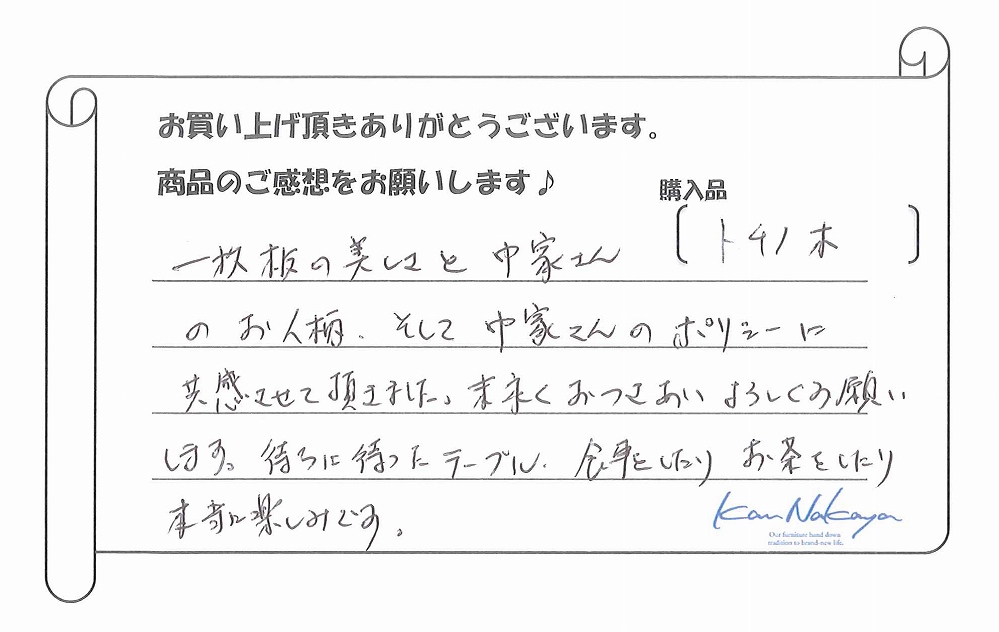 お買い上げ頂きありがとうございます。
商品のご感想をお願いします♪
購入品
〔トチノ木〕
一枚板の美しさと中家さん
のお人柄、そして中家さんのポリシーに
共感させて頂きました。末永くおつきあいよろしくお願い
します。待ちに待ったテーブル、食事をしたりお茶をしたり
本当に楽しみです。
Kan Nakaya
Our furniture hand down
tradition to brand-new life.